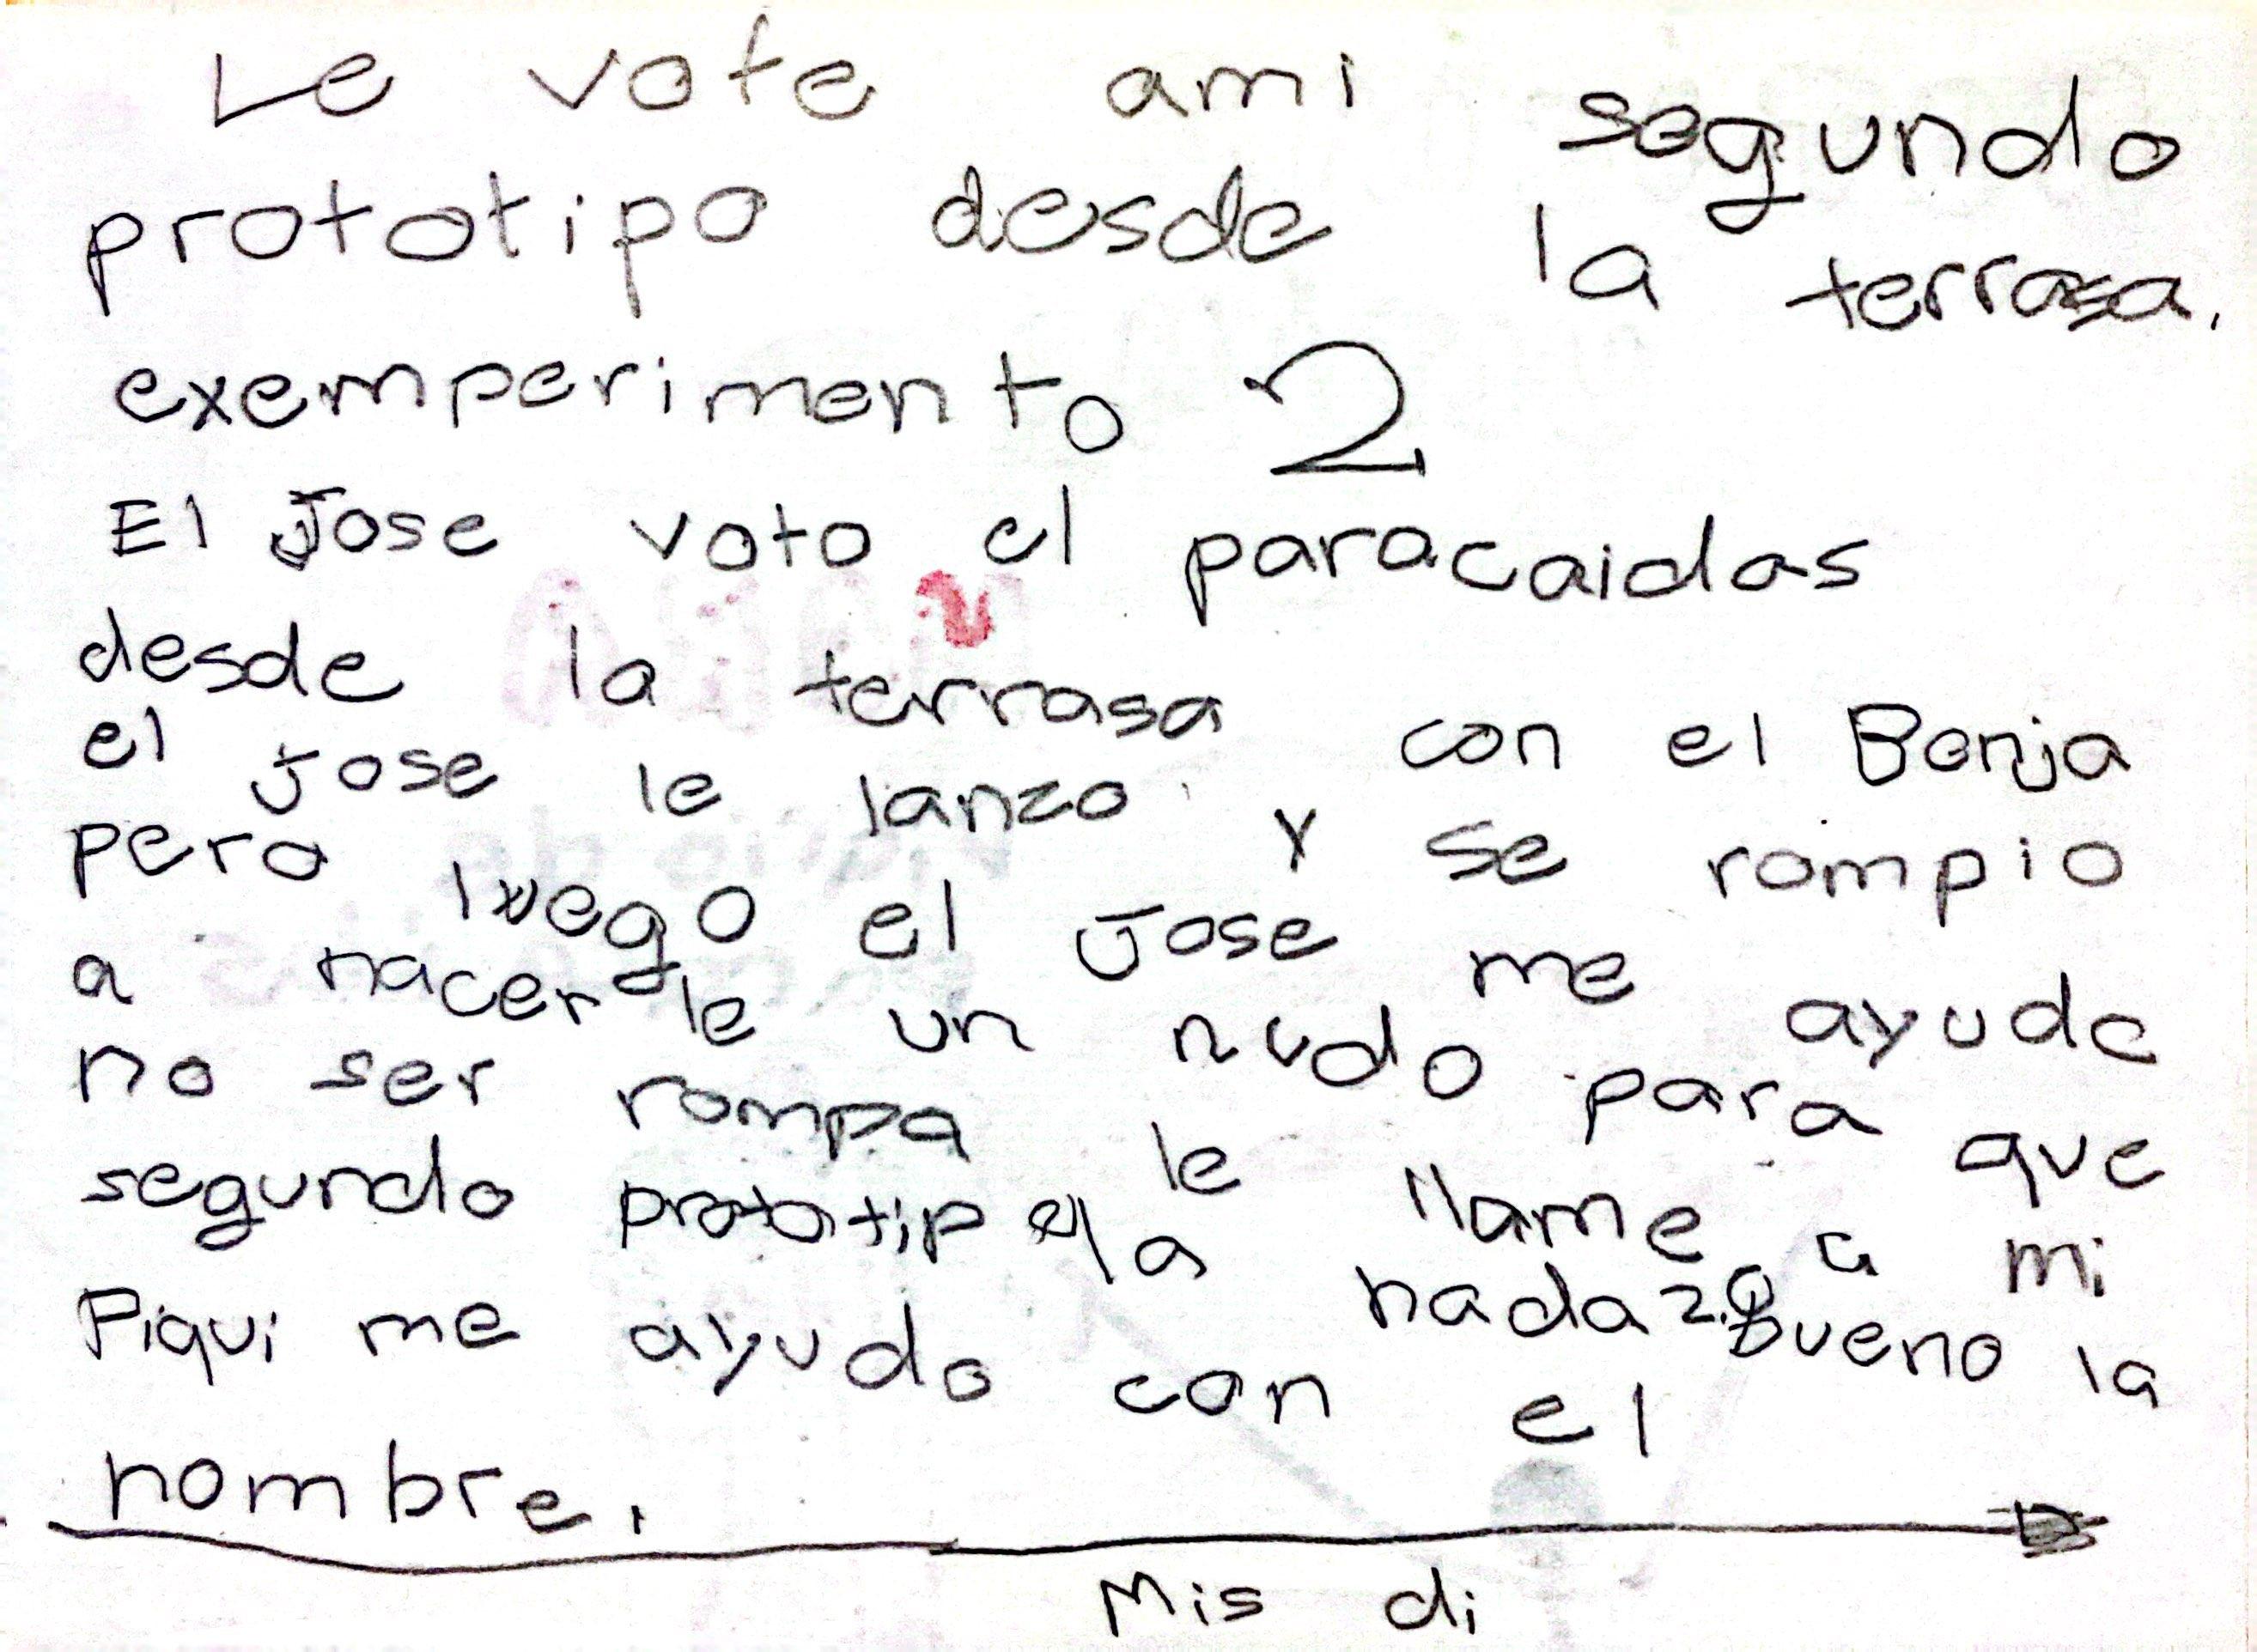 Le vote ami segundo
prototipo desde la terrasa.
exemperimento 2
El Jose voto el paracaidas
desde la terrasa con el Benja
el Jose le lanzo y se rompio
pero luego el Jose me ayudo
a hacerle un nudo para que
no ser rompa le llame a mi
segundo prototip el a nada 2.0 Bueno la
Piqui me ayudo con el
nombre.
Mis di